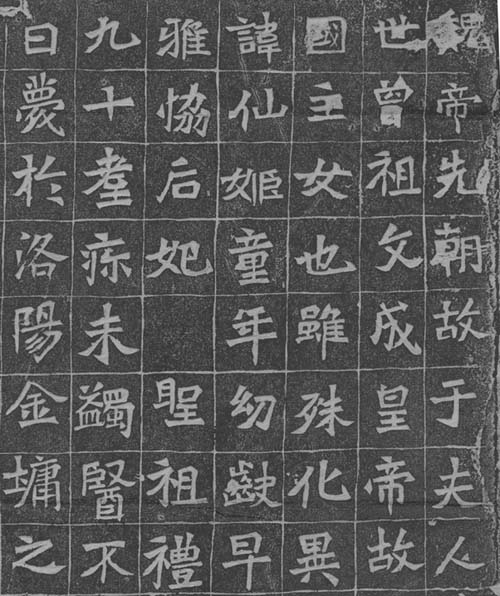 魏帝先朝故于夫人
世曾祖文成皇帝故
國主女也雖殊化異
諱仙姬童年幼齔早
雅恊后妃 聖祖禮
九十耋疹未蠲醫不
日薨於洛陽金墉之